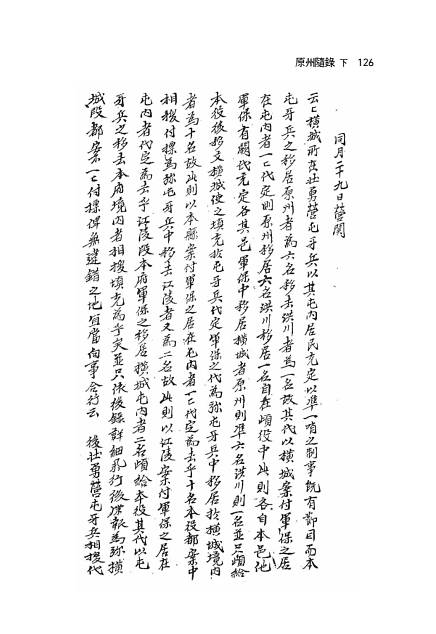 原州隨錄 下 126
同月二十九日營關
云云橫城所在壯勇營屯牙兵以其屯內居民充定以準一哨之制事旣有節目而本
屯牙兵之移居原州者爲六名移去洪川者爲一名故其代以橫城案付軍保之居
在屯內者一一代定則原州移居六名洪川移居一名自在頉役中此則各自本邑他
軍保有閑代充定各其邑軍保中移居橫城者原州則準六名洪川則一名並只頉給
本役後移文橫城使之塡充於屯牙兵代定軍保之代爲旀屯牙兵中移居於橫城境內
者爲十名故此則以本縣案付軍保之居在屯內者一一代定爲去乎十名本役都案中
相換付標爲旀屯牙兵中移去江陵者又爲二名故此則以江陵案付軍保之居在
屯內者代定爲去乎江陵段本府軍保之移居橫城屯內者二名頉給本役其代以屯
牙兵之移去本府境內者相換塡充爲乎矣並只依後錄詳細擧行後牒報爲旀橫
城段都案一一付標俾無違錯之地宜當向事合行云云 後壯勇營屯牙兵相換代